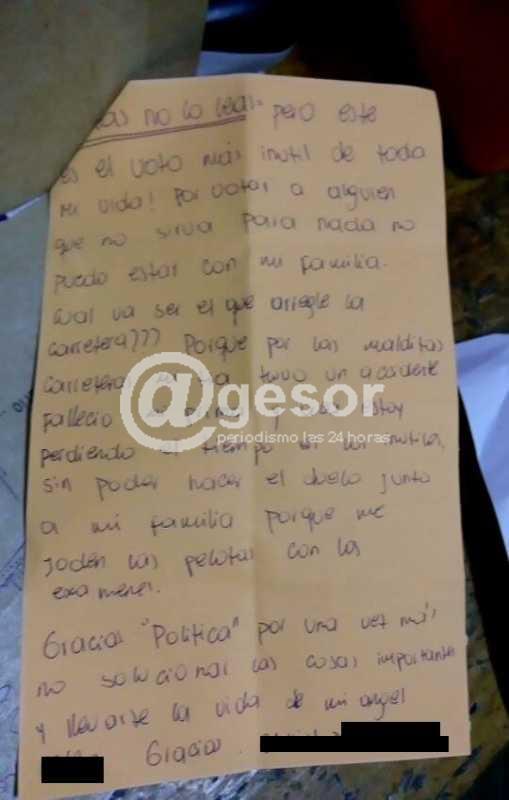 no lo leas pero este
es el voto más inutil de toda
mi vida! Por votar a alguien
que no sirva para nada no
puedo estar con mi familia.
Cual va ser el que arregle la
carretera??? Porque por las malditas
carreteras mi tia tuvo un accidente
fallecio mi primo y estoy
perdiendo el tiempo en
sin poder hacer el duelo junto
a mi familia porque me
joden las pelotas con los
examenes.
Gracias "Politica" por una vez más
no solucionar las cosas importantes
y llevarse la vida de mi angel
Gracias.
@gesor
periodismo las 24 horas